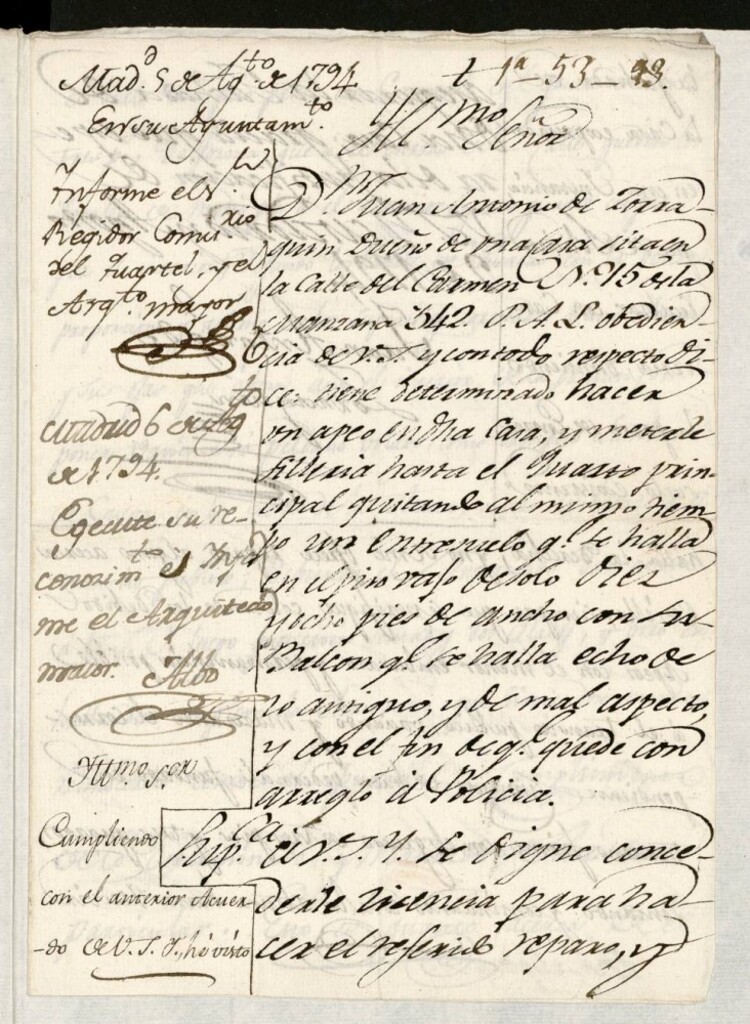 Mad.d 5 de Ag.to de 1794
En su Ayuntam.to
Informe el S.or
Regidor Comis.rio
del Quartel, y el
Arq.to mayor
Madrid 6 de Ag.to
de 1794.
Egecute su re-
conozim.to e Ynfor
me el Arquitecto
maior. Albo
Yllmo. S.or
Cumpliendo
con el anterior Acuer-
-do de V. S. Y., hé visto
t 1a - 53 - 93.
Yll.mo Señor
D.n Juan Antonio de Zorra-
quin Dueño de una Casa sita en
la Calle del Carmen N.º 15 de la
Manzana 342. P. A. L. obedien-
cia de V. S. Y. y con todo respecto di-
ce: tiene determinado hacer
un apeo en dha Casa, y meterle
silleria hasta el Quarto prin-
cipal quitando al mismo tiem-
po un entresuelo q.e se halla
en el piso vajo de solo Diez
y ocho pies de ancho con su
Balcon q.e se halla echo de
lo antiguo, y de mal aspecto,
y con el fin de q.e quede con
arreglo á Policia.
Sup.ca á V. S. Y. se digne conce-
derle licencia para ha-
cer el referido reparo, y